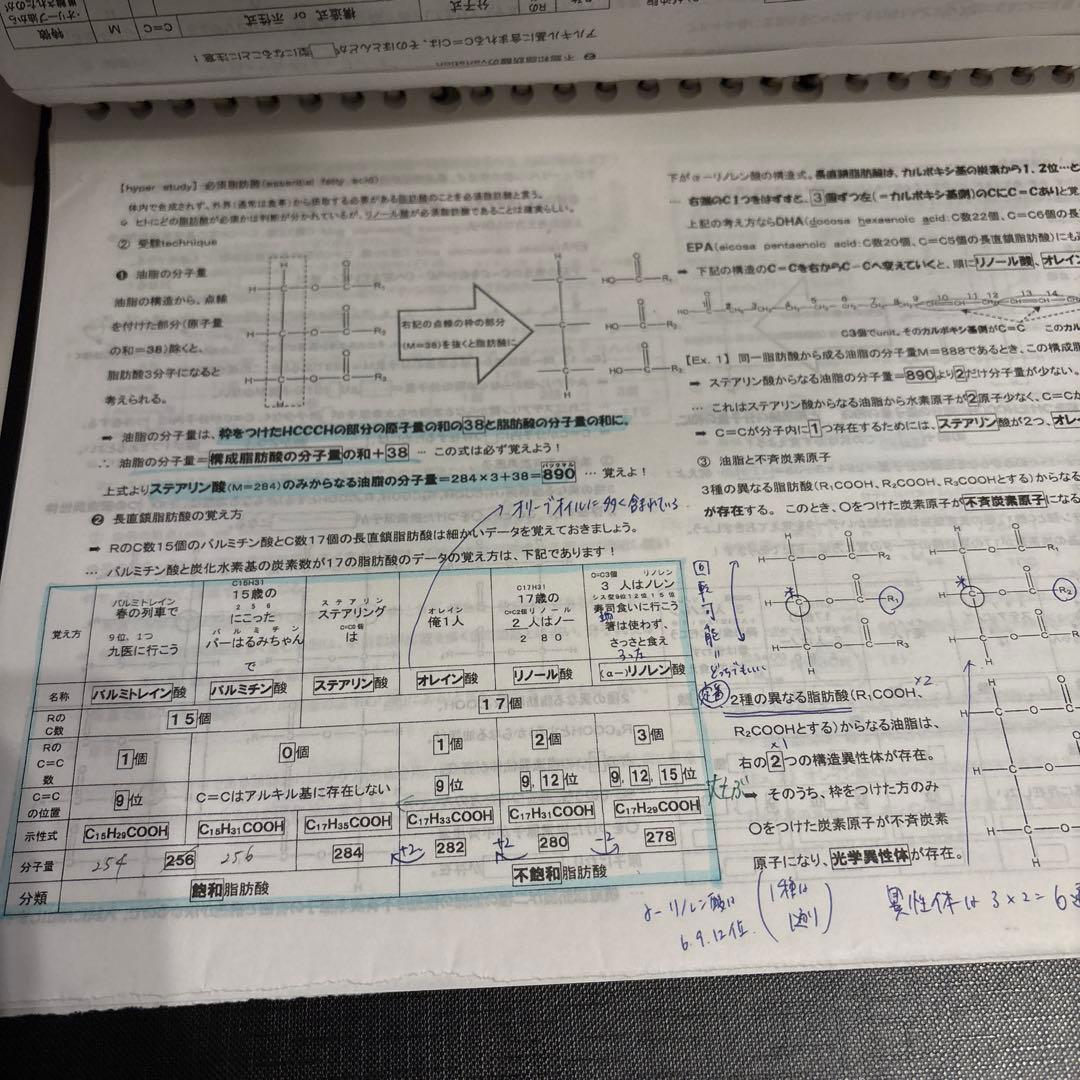 ❷ 不飽和脂肪酸のvariation
アルキル基に含まれるC=Cは、そのほとんどが 型になることに注意!
特徴 M C=C 構造式 or 示性式 分子式
【hyper study】必須脂肪酸(essential fatty acid)
体内で合成されず、外界(通常は食事)から摂取する必要がある脂肪酸のことを必須脂肪酸と言う。
ヒトにどの脂肪酸が必須かは判断が分かれているが、リノール酸が必須脂肪酸であることは確実らしい。
② 受験technique
❶ 油脂の分子量
油脂の構造から、点線
を付けた部分(原子量
の和=38)除くと、
脂肪酸3分子になると
考えられる。
H
H C O C O R₁
C O C O R₂
H C O C O R₃
H
右記の点線の枠の部分
(M=38)を抜くと脂肪酸に
H
H C
C
H C
H
HO C O R₁
HO C O R₂
HO C O R₃
➡ 油脂の分子量は、枠をつけたHCCCHの部分の原子量の和の38と脂肪酸の分子量の和に。
∴ 油脂の分子量=構成脂肪酸の分子量の和+38 … この式は必ず覚えよう!
上式よりステアリン酸(M=284)のみからなる油脂の分子量=284×3+38=890 … 覚えよ!
❷ 長直鎖脂肪酸の覚え方
オリーブオイルに多く含まれている
➡ RのC数15個のパルミチン酸とC数17個の長直鎖脂肪酸は細かいデータを覚えておきましょう。
… パルミチン酸と炭化水素基の炭素数が17の脂肪酸のデータの覚え方は、下記であります!
覚え方
パルミトレイン
春の列車で
9位、1つ
九医に行こう
C15H31
15歳の
2 5 6
にこった
パルミチン
パーはるみちゃん
で
ステアリン
ステアリング
C=C0個
は
オレイン
俺1人
C17H31
17歳の
C=C2個リノール
2 人はノー
2 8 0
C=C3個 リノレン
3 人はノレン
シス型9位12位15位
寿司食いに行こう
箸は使わず、
さっさと食え
名称 パルミトレイン酸 パルミチン酸 ステアリン酸 オレイン酸 リノール酸 (α-)リノレン酸
RのC数 15個 17個
RのC=C数 1個 0個 1個 2個 3個
C=Cの位置 9位 C=Cはアルキル基に存在しない 9位 9、12位 9、12、15位
示性式 C₁₅H₂₉COOH C₁₅H₃₁COOH C₁₇H₃₅COOH C₁₇H₃₃COOH C₁₇H₃₁COOH C₁₇H₂₉COOH
分子量 254 256 256 284 +2 282 +2 280 -2 278
分類 飽和脂肪酸 不飽和脂肪酸
γ-リノレン酸は
6.9.12位.
(1種は
1通り)
下がα-リノレン酸の構造式。長直鎖脂肪酸は、カルボキシ基の炭素から1、2位…と
… 右端のC1つをはずすと、3個ずつ左(=カルボキシ基側)のCにC=Cありと覚
上記の考え方ならDHA(docosa hexaenoic acid:C数22個、C=C6個の長
EPA(eicosa pentaenoic acid:C数20個、C=C5個の長直鎖脂肪酸)にも
➡ 下記の構造のC=Cを右からC-Cへ変えていくと、順にリノール酸、オレイン
C3個でunit。そのカルボキシ基側がC=C このカル
【Ex. 1】同一脂肪酸から成る油脂の分子量M=888であるとき、この構成脂
➡ ステアリン酸からなる油脂の分子量=890より2だけ分子量が少ない。
… これはステアリン酸からなる油脂から水素原子が2原子少なく、C=Cが
➡ C=Cが分子内に1つ存在するためには、ステアリン酸が2つ、オレ
③ 油脂と不斉炭素原子
3種の異なる脂肪酸(R₁COOH、R₂COOH、R₃COOHとする)からなる
が存在する。このとき、〇をつけた炭素原子が不斉炭素原子になる
回転可能=
どっちでもいい
2種の異なる脂肪酸(R₁COOH、
×2
R₂COOHとする)からなる油脂は、
×1
右の2つの構造異性体が存在。
➡ そのうち、枠をつけた方のみ
〇をつけた炭素原子が不斉炭素
原子になり、光学異性体が存在。
異性体は 3×2=6通